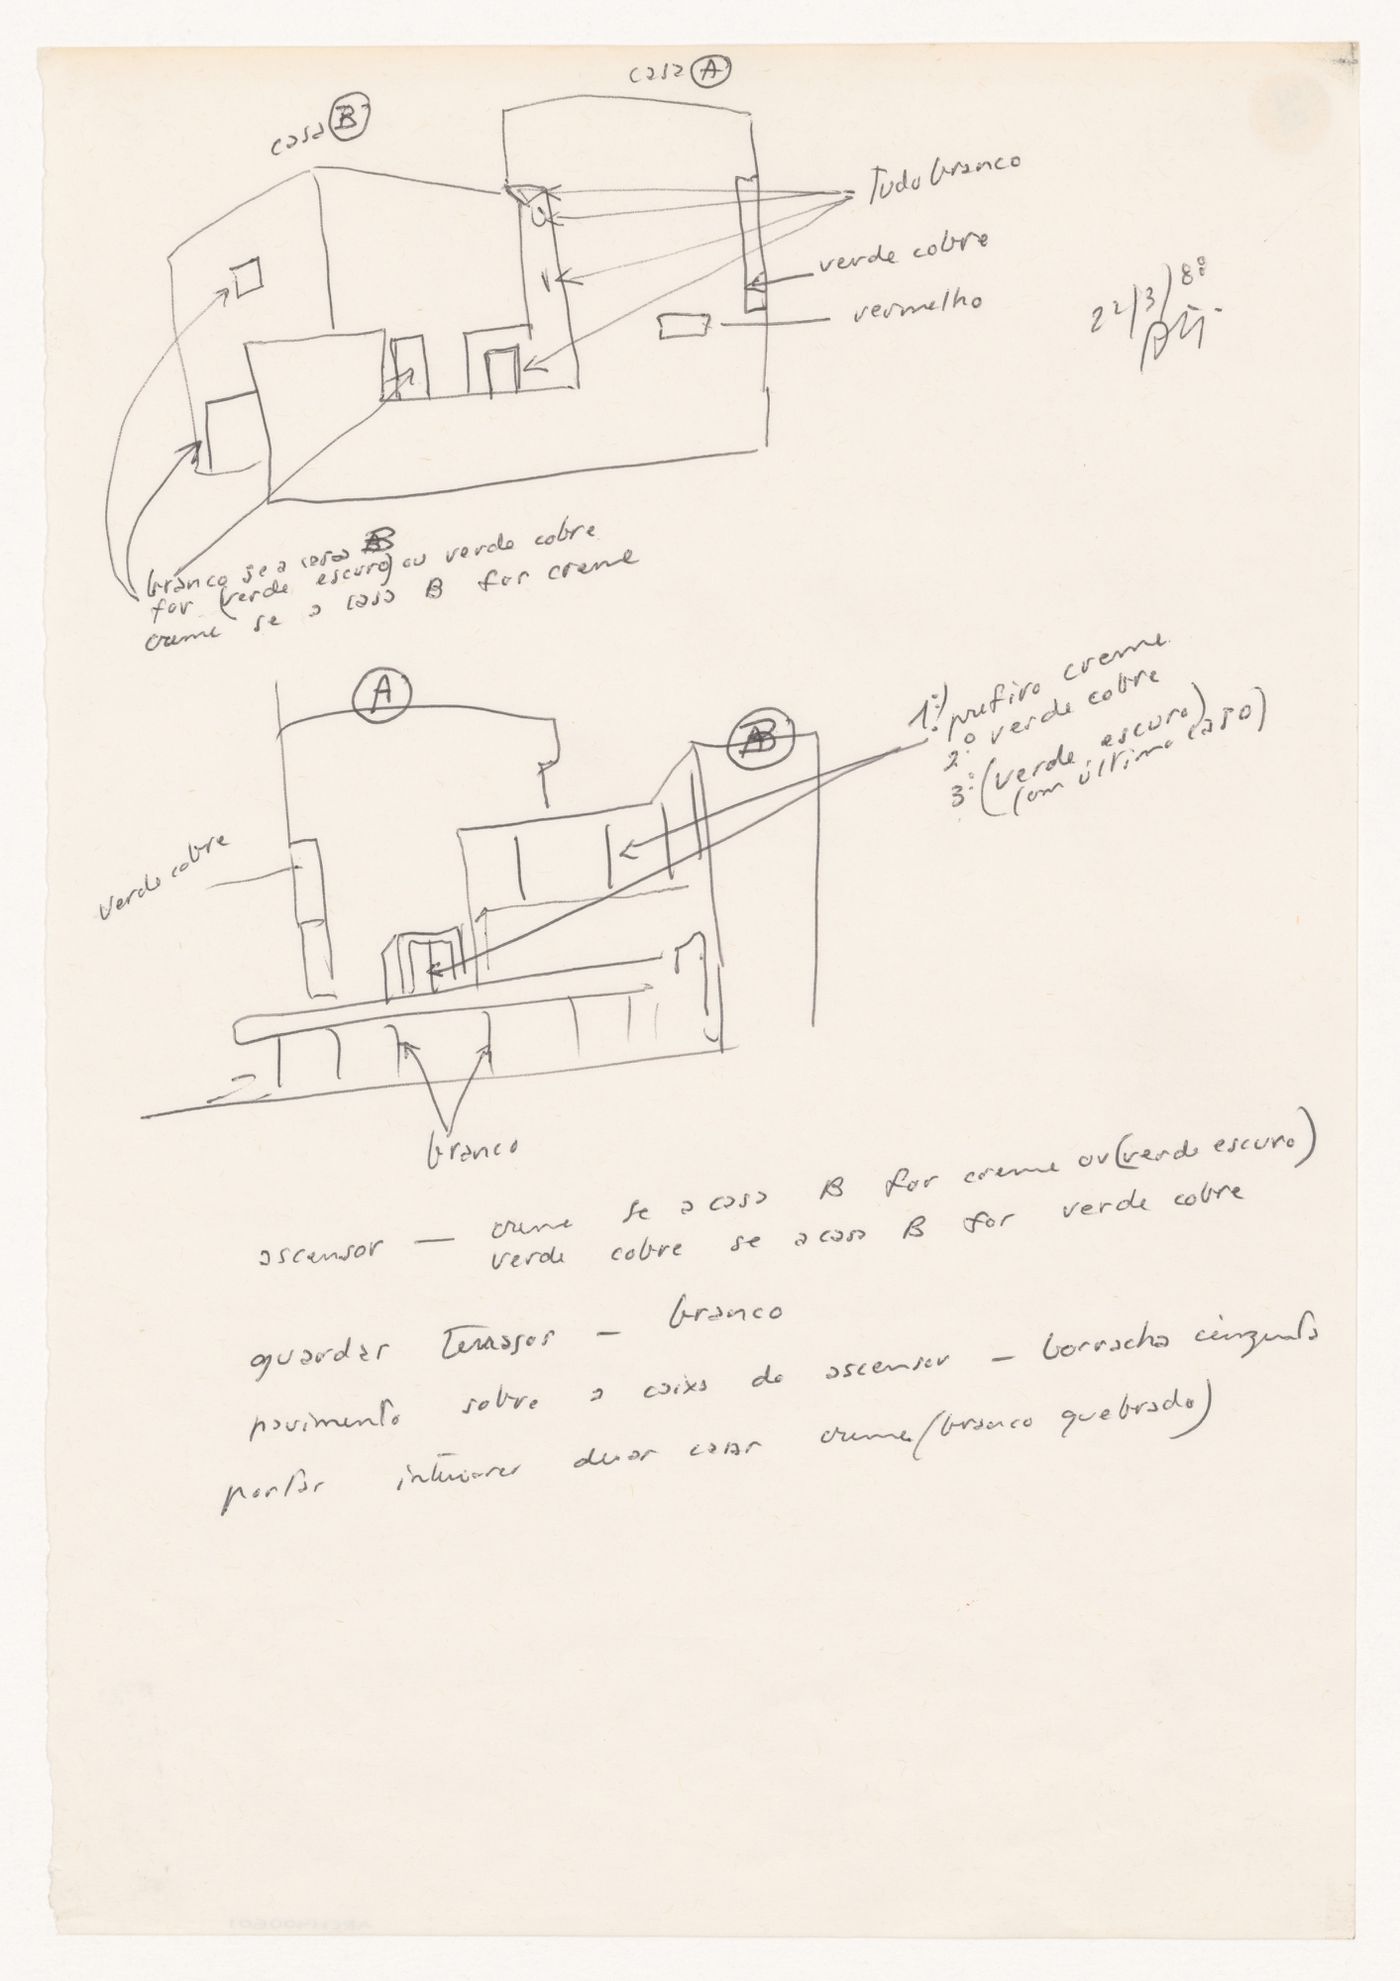 casa A
casa B
Tudo branco
verde cobre
vermelho
22/3/88
branco se a casa B
for (verde escuro) ou verde cobre
creme se a casa B for creme
A
B
1º) prefiro creme
2º verde cobre
3º (verde escuro)
(em último caso)
verde cobre
branco
ascensor — creme se a casa B for creme ou (verde escuro)
verde cobre se a casa B for verde cobre
guardas terraços — branco
pavimento sobre a caixa do ascensor — borracha cinzenta
portas interiores duas casas creme (branco quebrado)